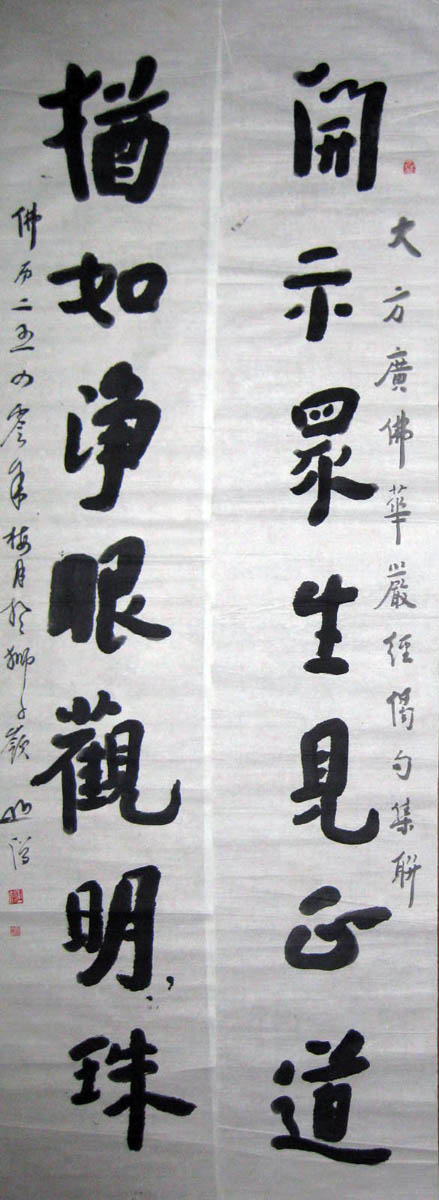 大方廣佛華嚴經偈句集聯
開示眾生見正道
猶如淨眼觀明珠
佛历二五四零年梅月於獅子嶺